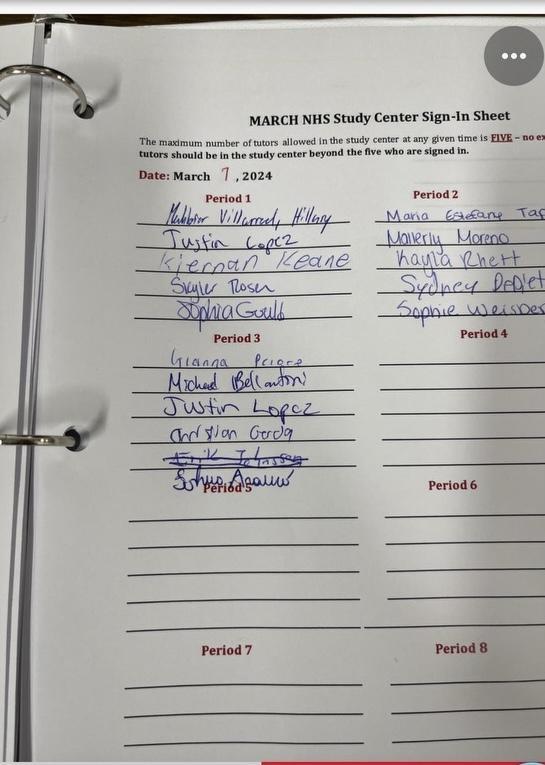 MARCH NHS Study Center Sign-In Sheet
The maximum number of tutors allowed in the study center at any given time is FIVE – no ex
tutors should be in the study center beyond the five who are signed in.
Date: March 7, 2024
Period 1
Villarreal, Hillary
Justin Lopez
Kiernan Keane
Skyler Rosen
Sophia Gould
Period 2
Maria Estefany Tap
Mallerly Moreno
Kayla Rhett
Sydney
Sophie Weisber
Period 3
Gianna
Michael Bellantoni
Justin Lopez
Christian Garcia
Erik
Period 4
Period 5
Period 6
Period 7
Period 8